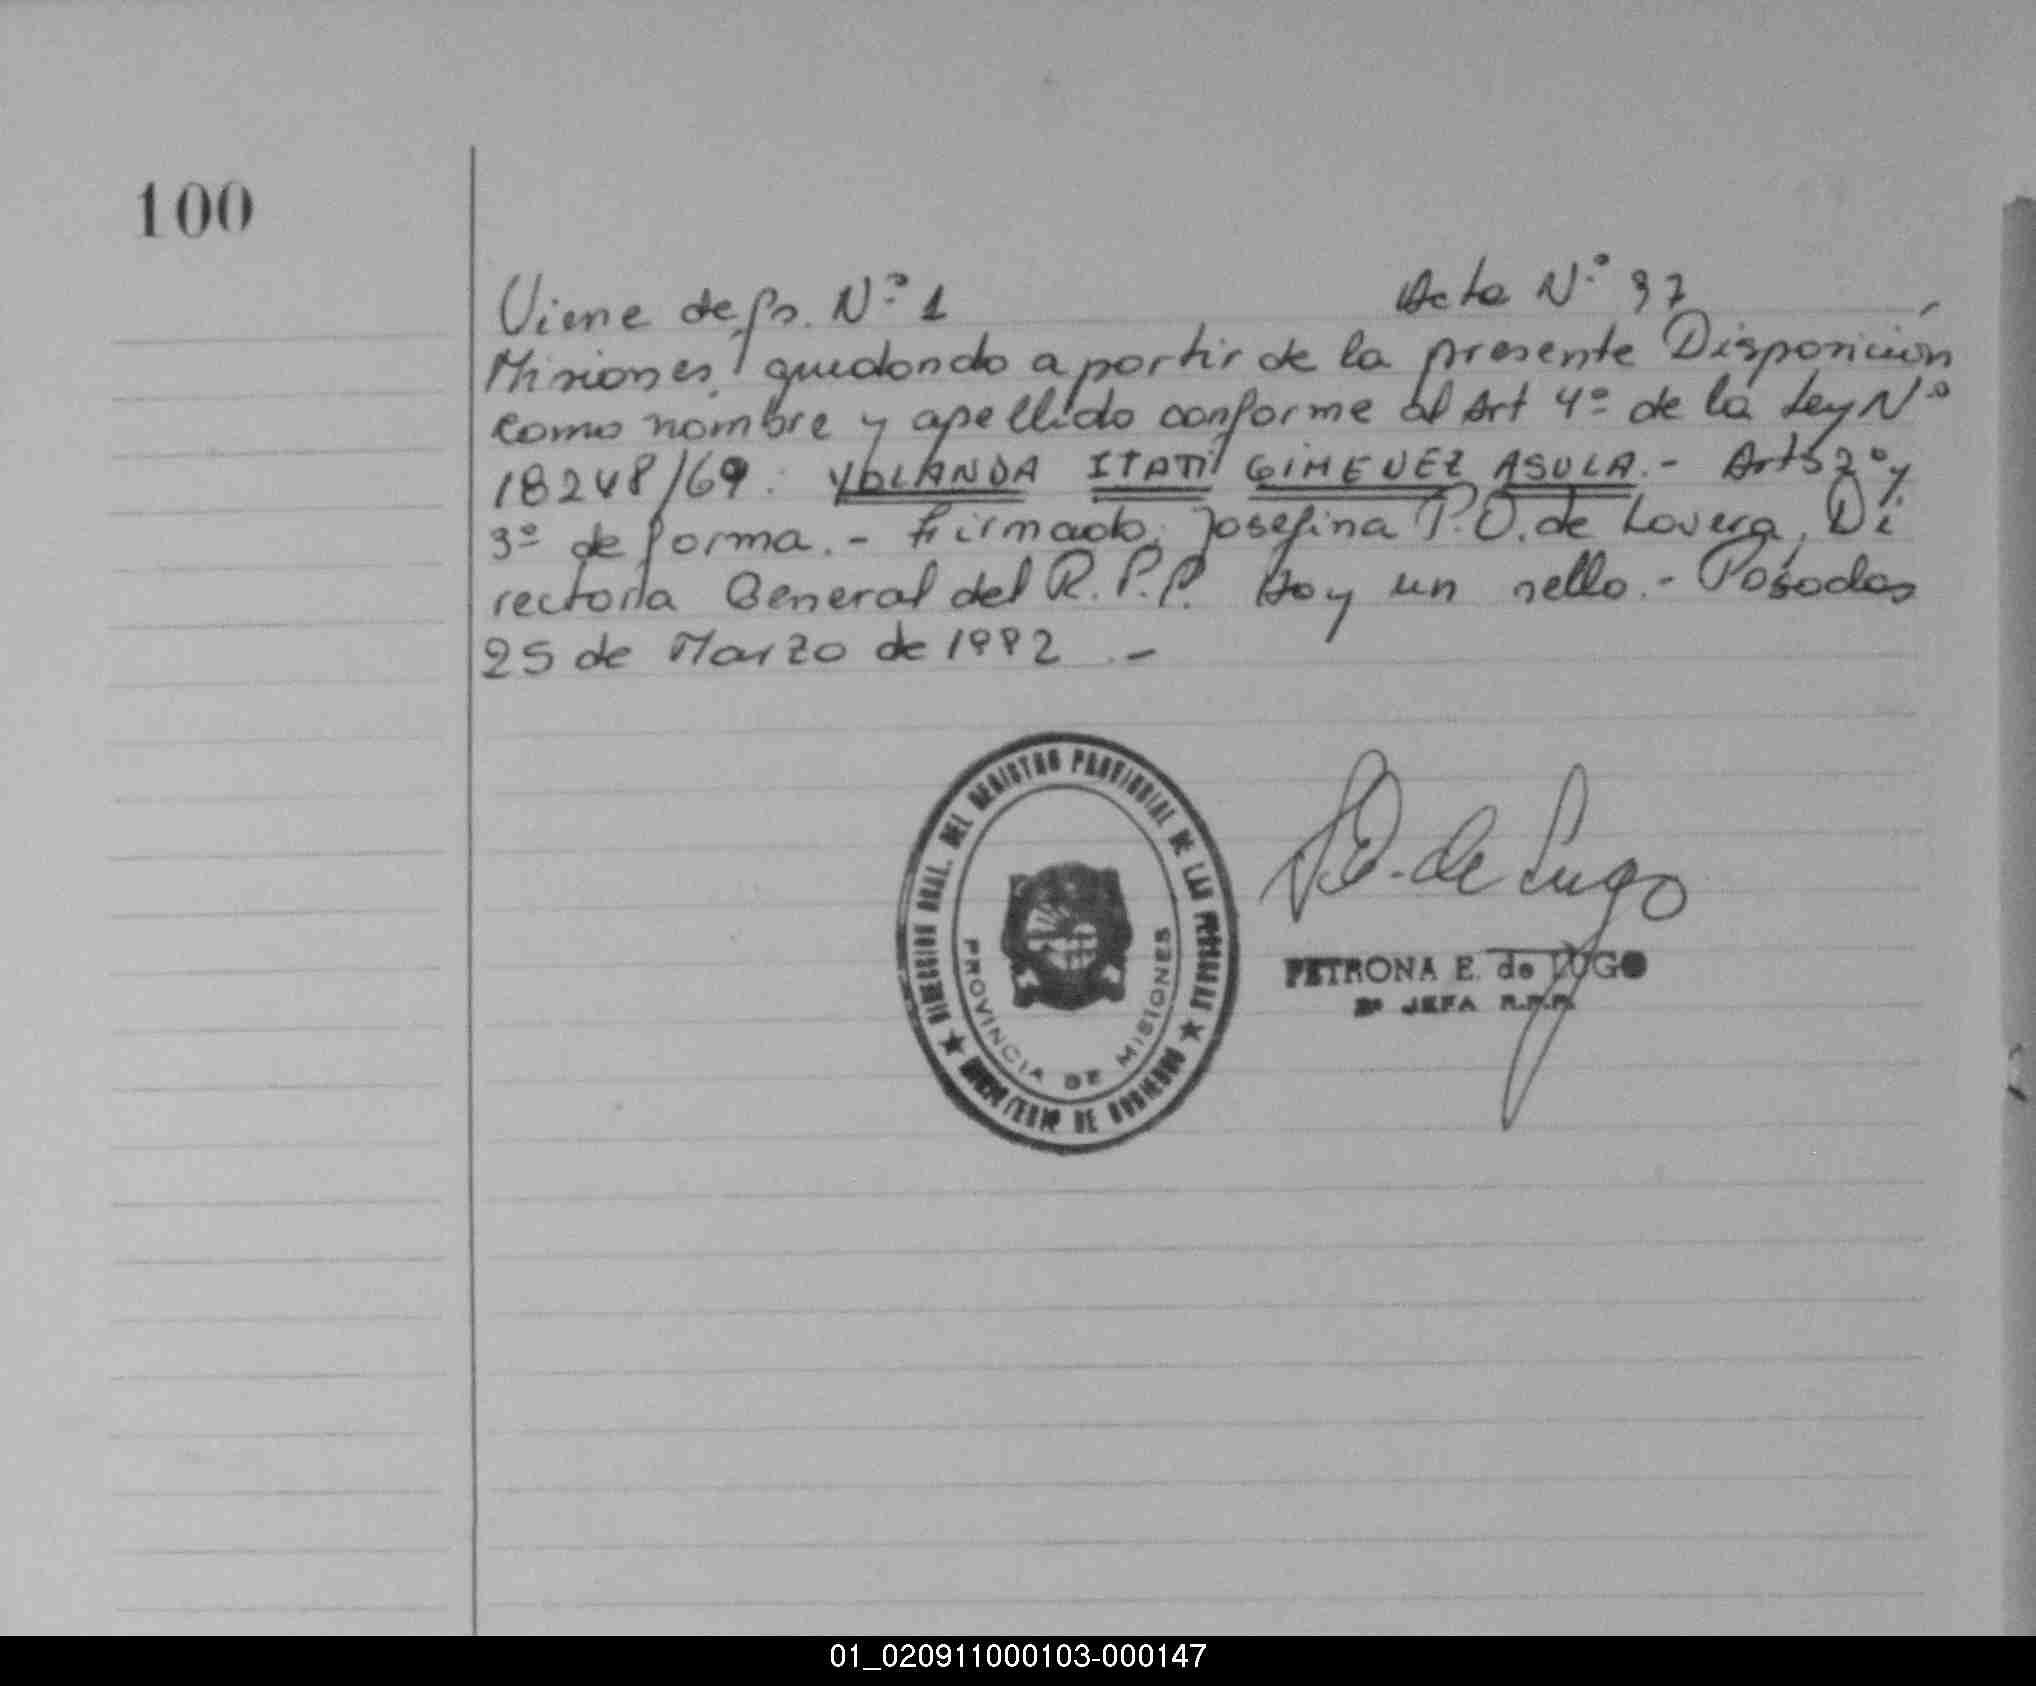 100
Viene de fs. Nº 1 Acta Nº 97
Misiones, quedando a partir de la presente Disposición
como nombre y apellido conforme al Art 4º de la Ley Nº
18248/69: YOLANDA ITATI GIMENEZ ASULA.- Arts 2º y
3º de forma.- Firmado: Josefina P. O. de Lovera, Di
rectora General del R.P.P. Hay un sello.- Posadas
25 de Marzo de 1992.-
DIRECCION GRAL. DEL REGISTRO PROVINCIAL DE LAS PERSONAS
PROVINCIA DE MISIONES
MINISTERIO DE GOBIERNO
E. de Lugo
PETRONA E. de LUGO
2ª JEFA R.P.P.
01_020911000103-000147